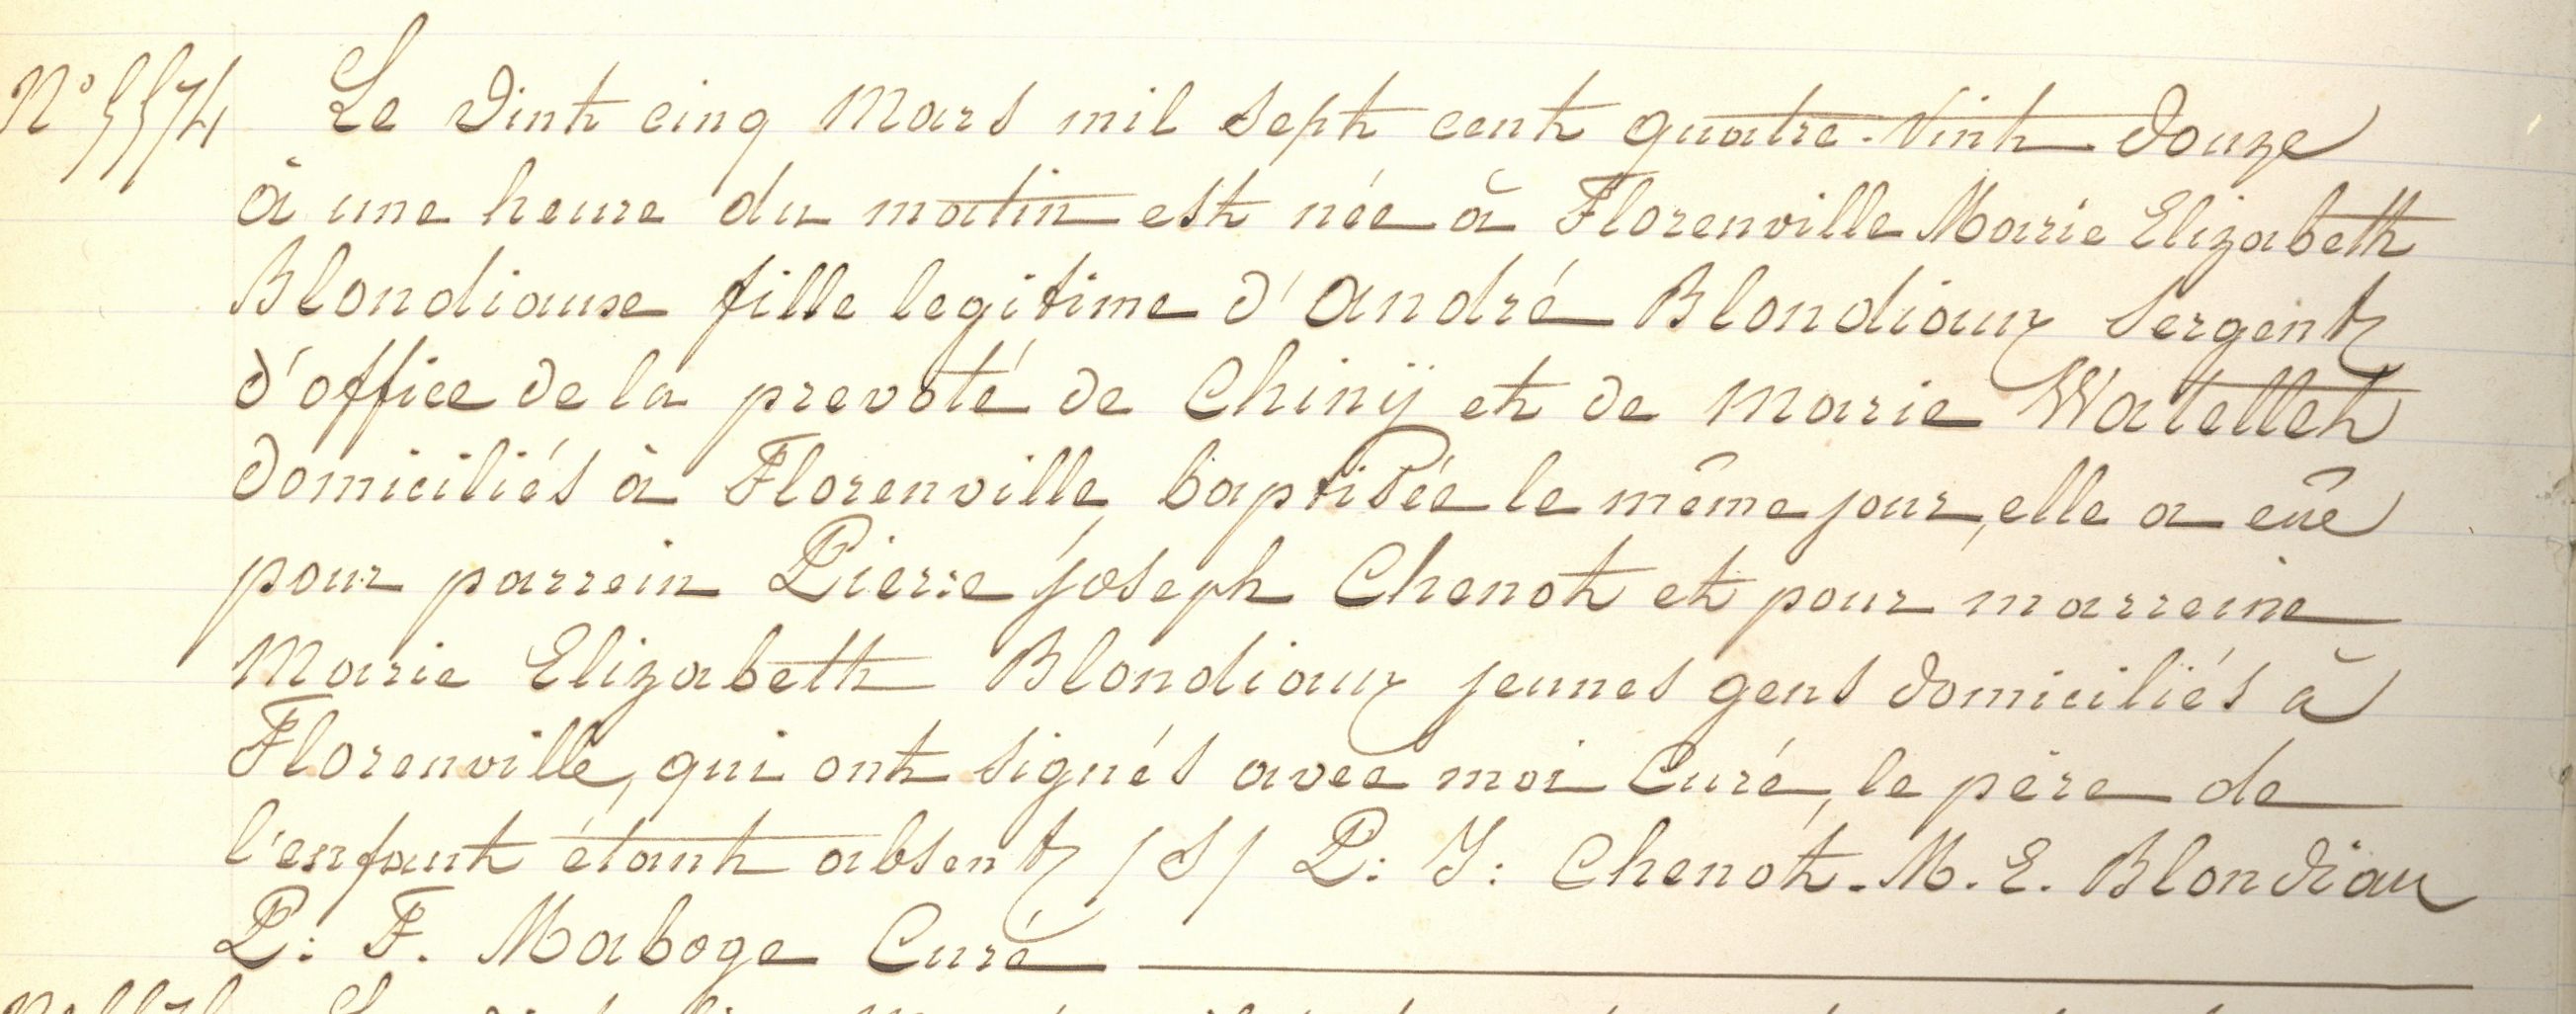 N° 5574 Le vint cinq Mars mil sept cent quatre-vint douze
à une heure du matin est née à Florenville Marie Elizabeth
Blondiause fille legitime d'André Blondiaux Sergent
d'office de la prevoté de Chinÿ et de Marie Watellet
domiciliés à Florenville, baptisée le même jour, elle a eüe
pour parrein Pierre joseph Chenot et pour marreine
Marie Elizabeth Blondiaux jeunes gens domiciliés à
Florenville, qui ont signés avec moi Curé, le père de
l'enfant étant absent /S/ P: J: Chenot. M. E. Blondiau
P: F. Maboge Curé